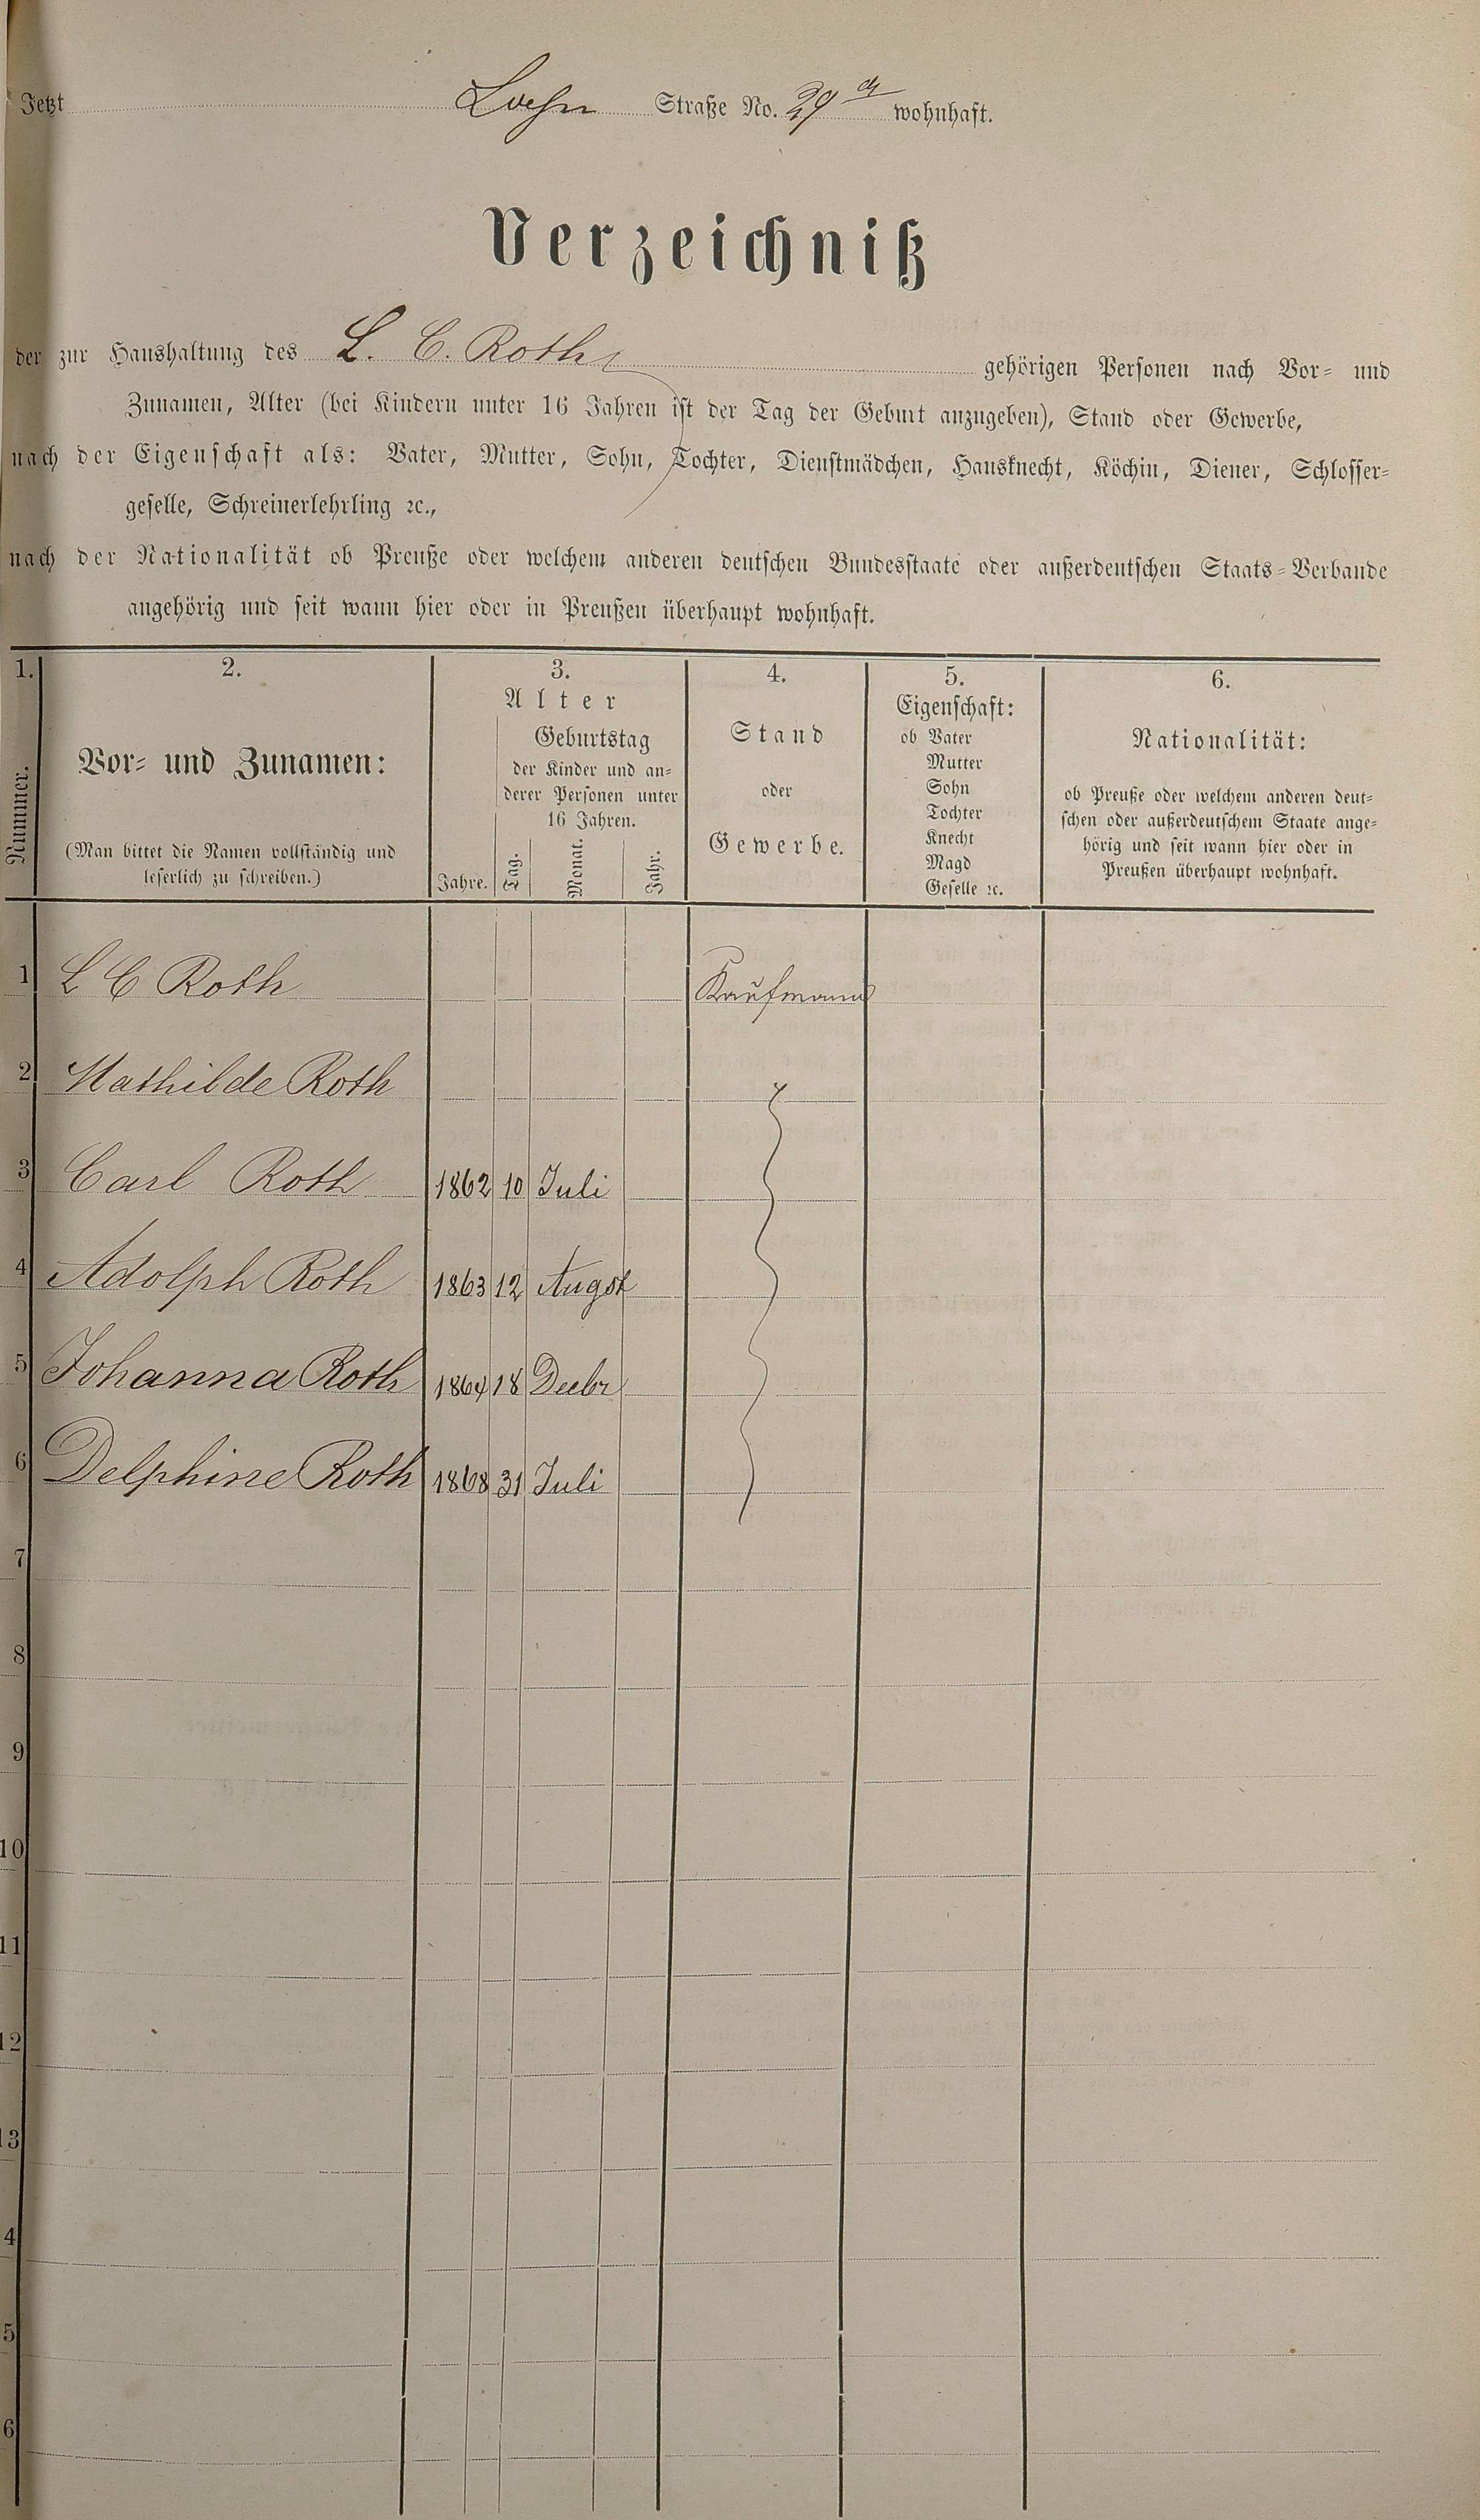 Jetzt Straße No. 29 a wohnhaft.
Verzeichniß
der zur Haushaltung des L. C. Roth gehörigen Personen nach Vor- und
Zunamen, Alter (bei Kindern unter 16 Jahren ist der Tag der Geburt anzugeben), Stand oder Gewerbe,
nach der Eigenschaft als: Vater, Mutter, Sohn, Tochter, Dienstmädchen, Hausknecht, Köchin, Diener, Schlosser-
geselle, Schreinerlehrling ꝛc.,
nach der Nationalität ob Preuße oder welchem anderen deutschen Bundesstaate oder außerdeutschen Staats-Verbande
angehörig und seit wann hier oder in Preußen überhaupt wohnhaft.
1. 2. 3. 4. 5. 6.
Nummer.
Vor- und Zunamen:
(Man bittet die Namen vollständig und
leserlich zu schreiben.)
Alter
Jahre.
Geburtstag
der Kinder und an-
derer Personen unter
16 Jahren.
Tag. Monat. Jahr.
Stand
oder
Gewerbe.
Eigenschaft:
ob Vater
Mutter
Sohn
Tochter
Knecht
Magd
Geselle ꝛc.
Nationalität:
ob Preuße oder welchem anderen deut-
schen oder außerdeutschem Staate ange-
hörig und seit wann hier oder in
Preußen überhaupt wohnhaft.
1 L C Roth Kaufmann
2 Mathilde Roth
3 Carl Roth 1862 10 Juli
4 Adolph Roth 1863 12 Augst
5 Johanna Roth 1864 18 Decbr
6 Delphine Roth 1868 31 Juli
7
8
9
10
11
12
13
4
5
6